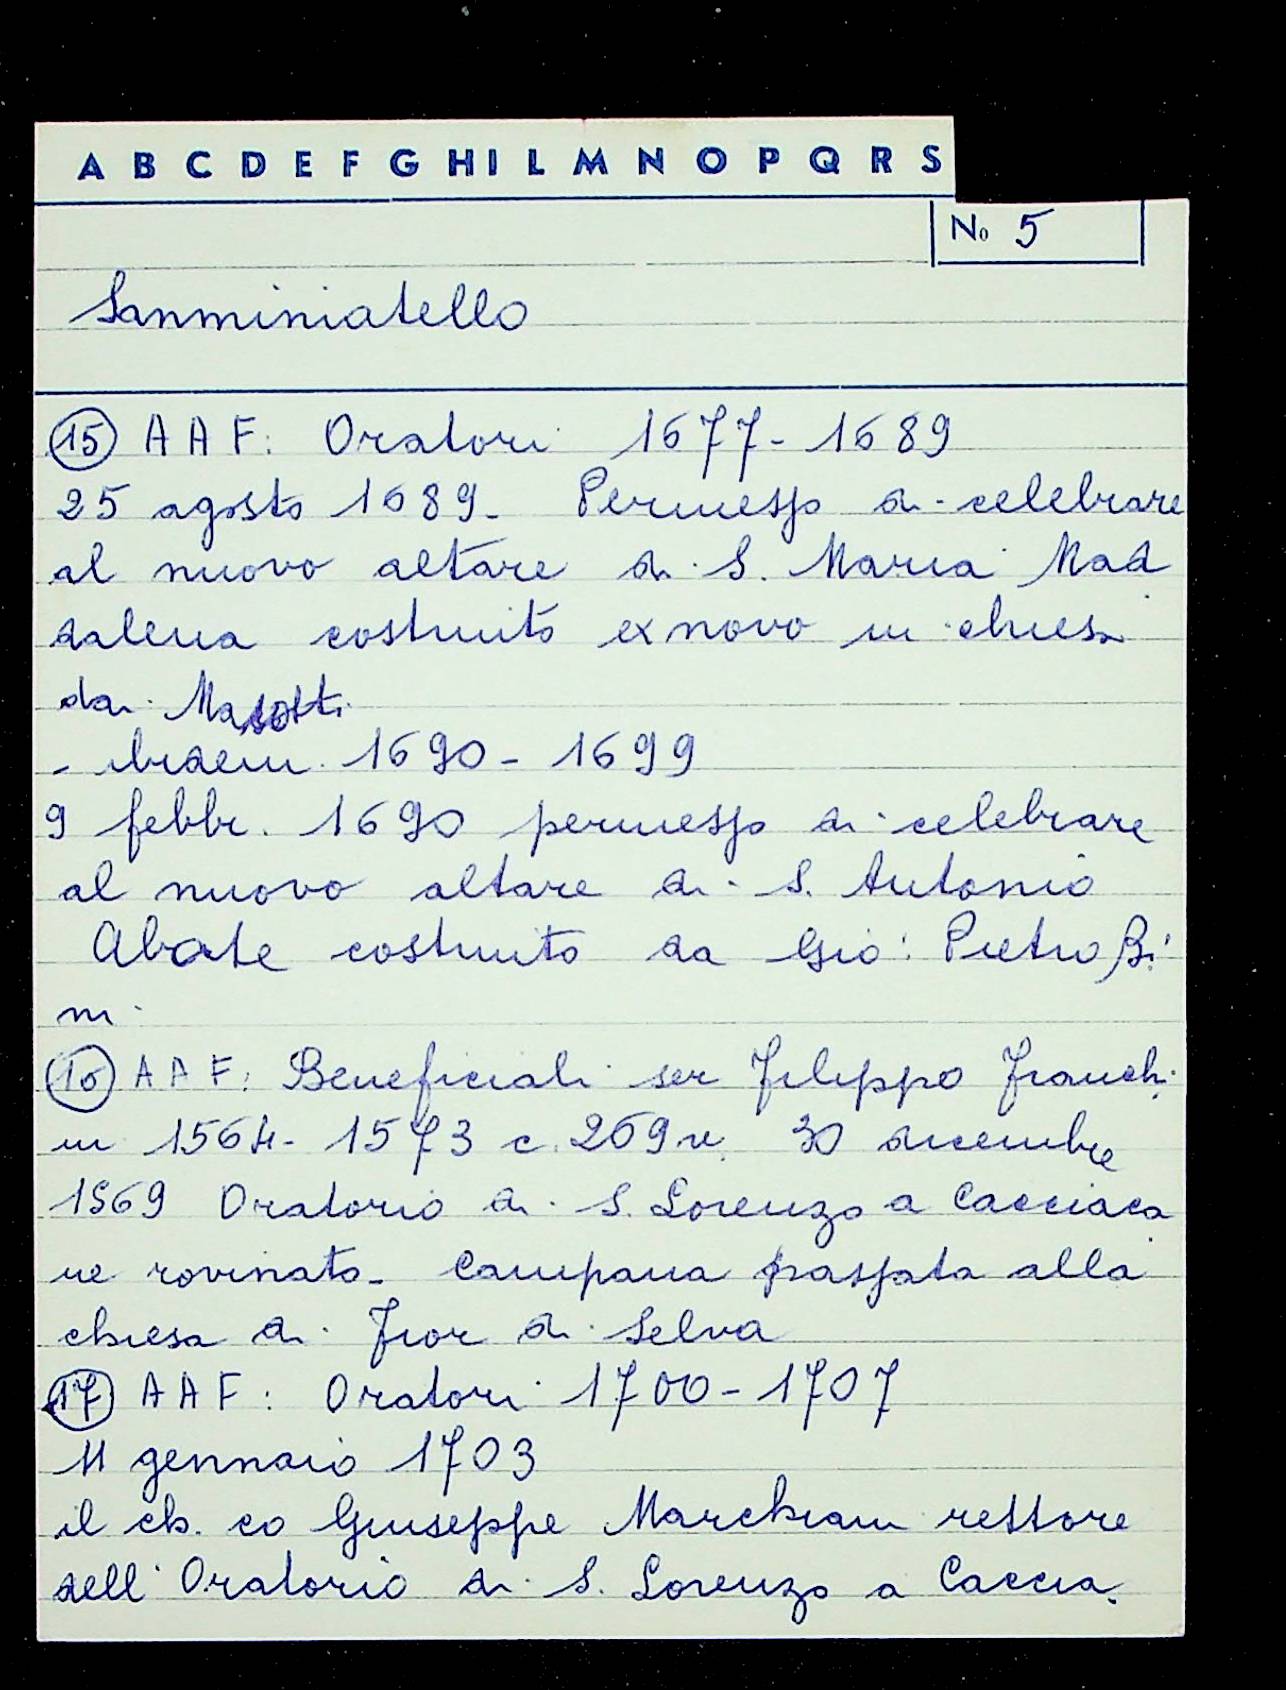 A B C D E F G H I L M N O P Q R S
No 5
Sanminiatello
15 A A F: Oratori 1677-1689
25 agosto 1689- Permesso di celebrare
al nuovo altare di S. Maria Mad
dalena costruito ex novo in chiesa
dai Masotti
- ibidem 1690-1699
9 febbr. 1690 permesso di celebrare
al nuovo altare di S. Antonio
Abate costruito da Gio: Pietro Bi
ni
16 A A F: Beneficiali ser Filippo Franchi
ni 1564-1573 c. 269v. 30 dicembre
1569 Oratorio di S. Lorenzo a Cacciaca
ne rovinato- Campana passata alla
chiesa di Fior di Selva
17 A A F: Oratori 1700-1707
11 gennaio 1703
il ch.co Giuseppe Marchiani rettore
dell'Oratorio di S. Lorenzo a Caccia.